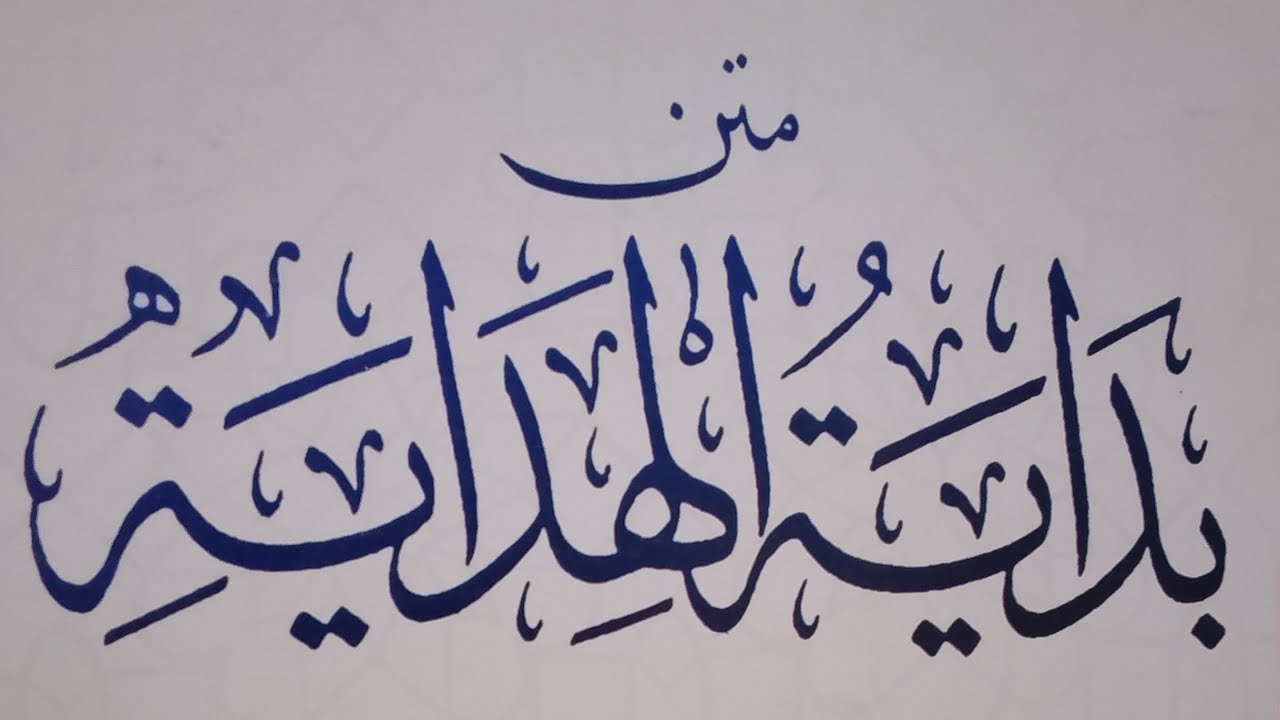 متن
بَدَايَةُ الْهِدَايَةِ